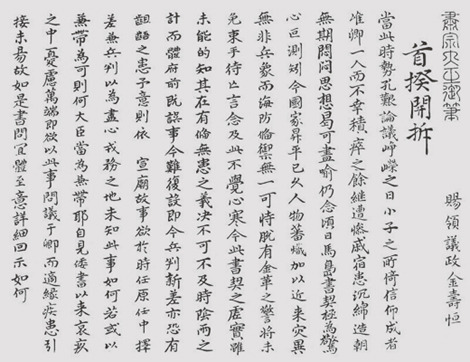 肅宗大王御筆
首揆開拆
賜領議政金壽恒
當此時勢孔艱論議崢嶸之日小子之所倚信仰成者
唯卿一人而不幸積瘁之餘繼遭慘慼宿患沉緜造朝
無期思想曷可盡喻仍念頃日馬島書契極為驚
心叵測矧今國家昇平已久人物蕃熾加以近来灾異
無非兵象而海防備禦無一可恃脫有金革之警將未
免束手待亡言念及此不覺心寒今此書契之虛實雖
未能的知其在有備無患之義决不可不及時陰雨之
計而體府前既誤事今難復設即今兵判新差亦恐有
齟齬之患予意則依 宣廟故事欲於時任原任中擇
差兼兵判以為盡心戎務之地未知此事如何若或以
兼帶為可則何大臣當為兼帶耶自見倭書以来哀疚
之中憂慮萬端即欲以此事問議于卿而適緣疾患引
接未易故如是書問冝體至意詳細回示如何